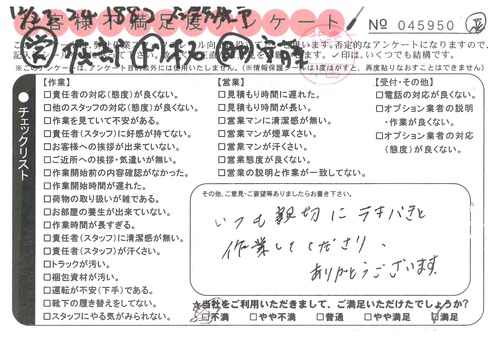 お客様不満足度アンケート
No 045950
チェックリスト
【作業】
□責任者の対応(態度)が良くない。
□他のスタッフの対応(態度)が良くない。
□作業を見ていて不安がある。
□責任者(スタッフ)に好感が持てない。
□お客様への挨拶が出来ていない。
□ご近所への挨拶・気遣いが無い。
□作業開始前の内容確認がなかった。
□作業開始時間が遅れた。
□荷物の取り扱いが雑である。
□お部屋の養生が出来ていない。
□作業時間が長すぎる。
□責任者(スタッフ)に清潔感が無い。
□責任者(スタッフ)が汗くさい。
□トラックが汚い。
□梱包資材が汚い。
□運転が不安(下手)である。
□靴下の履き替えをしてない。
□スタッフにやる気がみられない。
【営業】
□見積もり時間に遅れた。
□見積もり時間が長い。
□営業マンに清潔感が無い。
□営業マンが煙草くさい。
□営業マンが汗くさい。
□営業態度が良くない。
□営業の説明と作業が一致してない。
【受付・その他】
□電話の対応が良くない。
□オプション業者の説明
・作業が良くない。
□オプション業者の対応
(態度)が良くない。
その他、ご意見・ご要望等ありましたらお書き下さい。
いつも親切にテキパキと
作業してくださり、
ありがとうございます
★当社をご利用いただきまして、ご満足いただけたでしょうか?
□不満 □やや不満 □普通 □やや満足 □満足